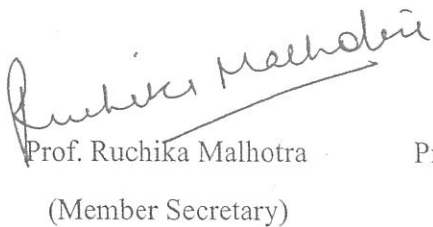 Ruchika Malhotra
Prof. Ruchika Malhotra
(Member Secretary)